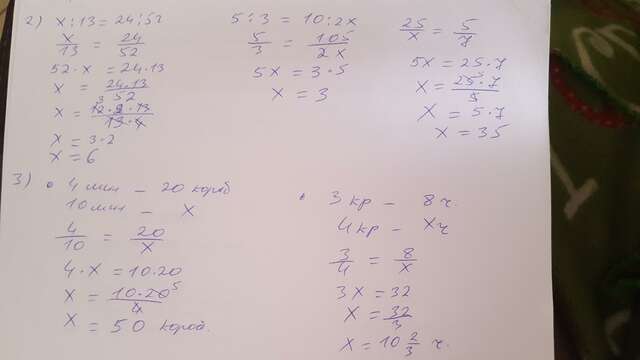 2) x : 13 = 24 : 52
x/13 = 24/52
52 · x = 24 · 13
x = 24 · 13/52
x = 12 · 2 · 13/13 · 4
x = 3 · 2
x = 6
5 : 3 = 10 : 2x
5/3 = 10 5/2x
5x = 3 · 5
x = 3
25/x = 5/7
5x = 25 · 7
x = 25 · 7/5
x = 5 · 7
x = 35
3) • 4 мин – 20 короб
10 мин – x
4/10 = 20/x
4 · x = 10 · 20
x = 10 · 20 5/4
x = 50 короб.
• 3 кр – 8 ч.
4 кр – x ч
3/4 = 8/x
3x = 32
x = 32/3
x = 10 2/3 ч.